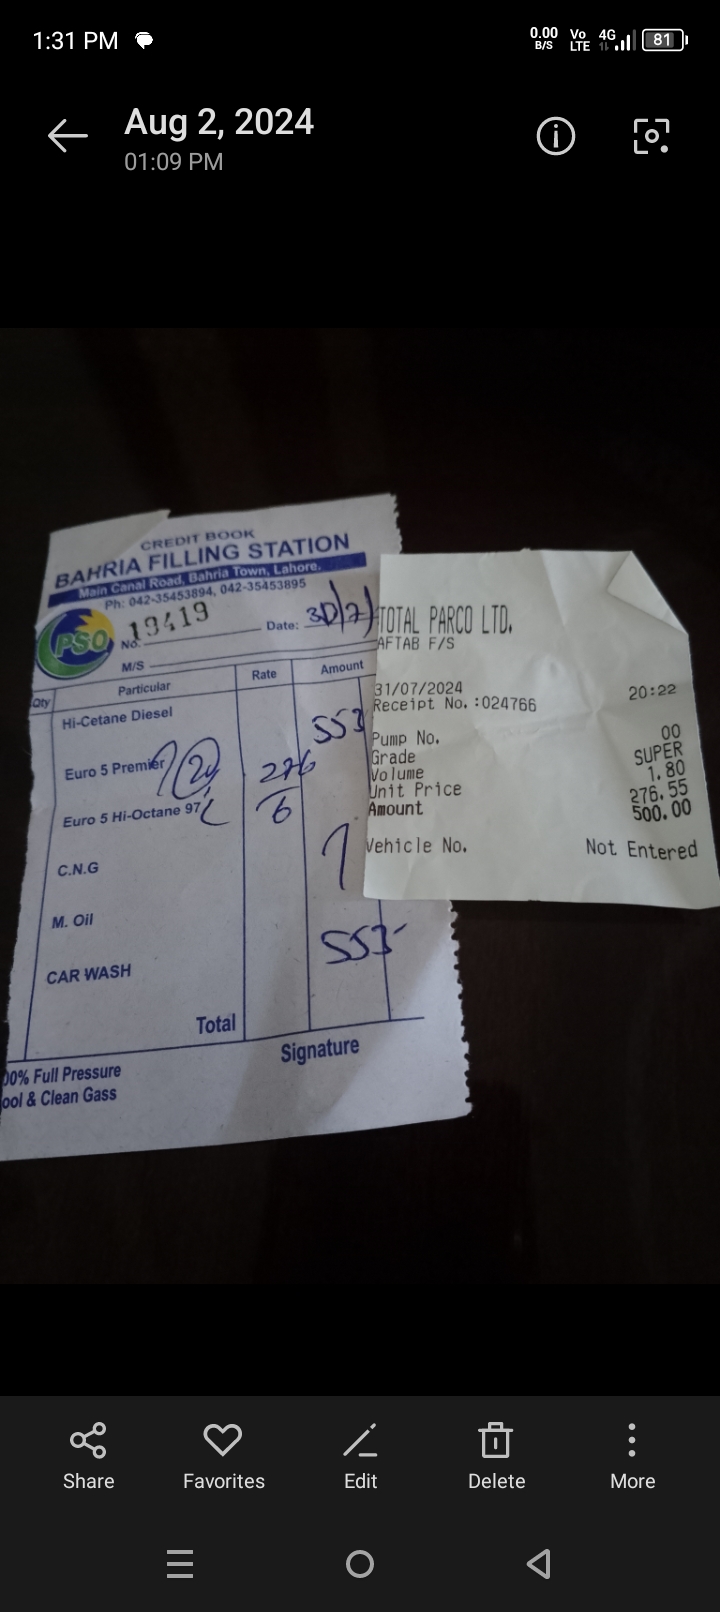 1:31 PM
0.00 B/S Vo LTE 4G 81
Aug 2, 2024
01:09 PM
CREDIT BOOK
BAHRIA FILLING STATION
Main Canal Road, Bahria Town, Lahore.
Ph: 042-35453894, 042-35453895
PSO
No. 19419 Date: 30/7/
M/S
Qty Particular Rate Amount
Hi-Cetane Diesel 553
Euro 5 Premier 2L 276
Euro 5 Hi-Octane 97 6
C.N.G
M. Oil
553
CAR WASH
Total
Signature
00% Full Pressure
ool & Clean Gass
TOTAL PARCO LTD.
AFTAB F/S
31/07/2024 20:22
Receipt No. :024766
Pump No. 00
Grade SUPER
Volume 1.80
Unit Price 276.55
Amount 500.00
Vehicle No. Not Entered
Share Favorites Edit Delete More